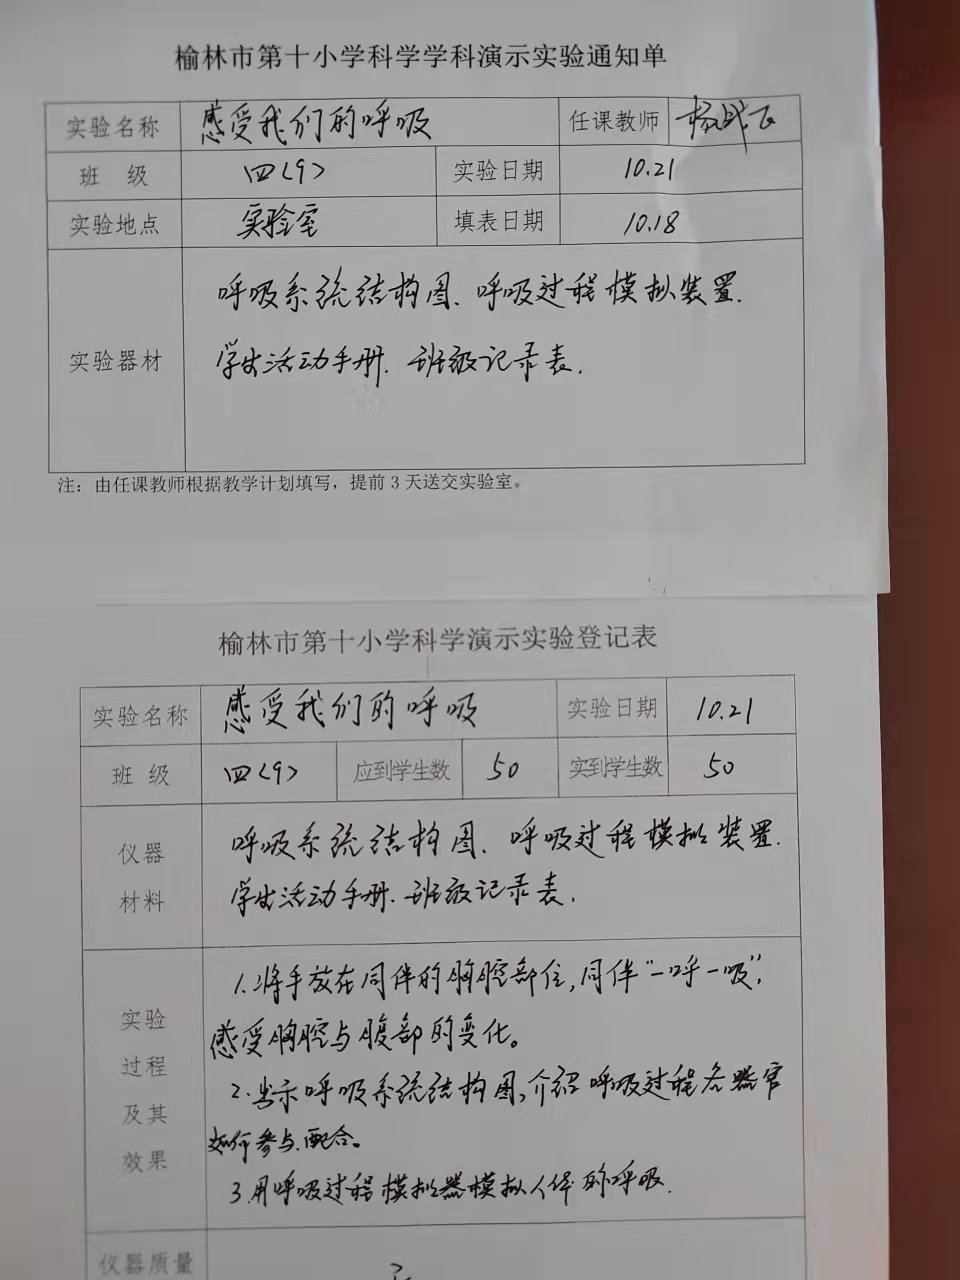 榆林市第十小学科学学科演示实验通知单
实验名称 感受我们的呼吸 任课教师
班 级 四（9） 实验日期 10.21
实验地点 实验室 填表日期 10.18
呼吸系统结构图、呼吸过程模拟装置、
实验器材 学生活动手册、班级记录表.
注：由任课教师根据教学计划填写，提前3天送交实验室。
榆林市第十小学科学演示实验登记表
实验名称 感受我们的呼吸 实验日期 10.21
班 级 四（9） 应到学生数 50 实到学生数 50
仪器 呼吸系统结构图、呼吸过程模拟装置.
材料 学生活动手册、班级记录表.
1.将手放在同伴的胸腔部位,同伴“一呼一吸”,
实验 感受胸腔与腹部的变化。
过程 2.出示呼吸系统结构图,介绍呼吸过程各器官
及其 如何参与、配合。
效果 3.用呼吸过程模拟器模拟人体的呼吸.
仪器质量